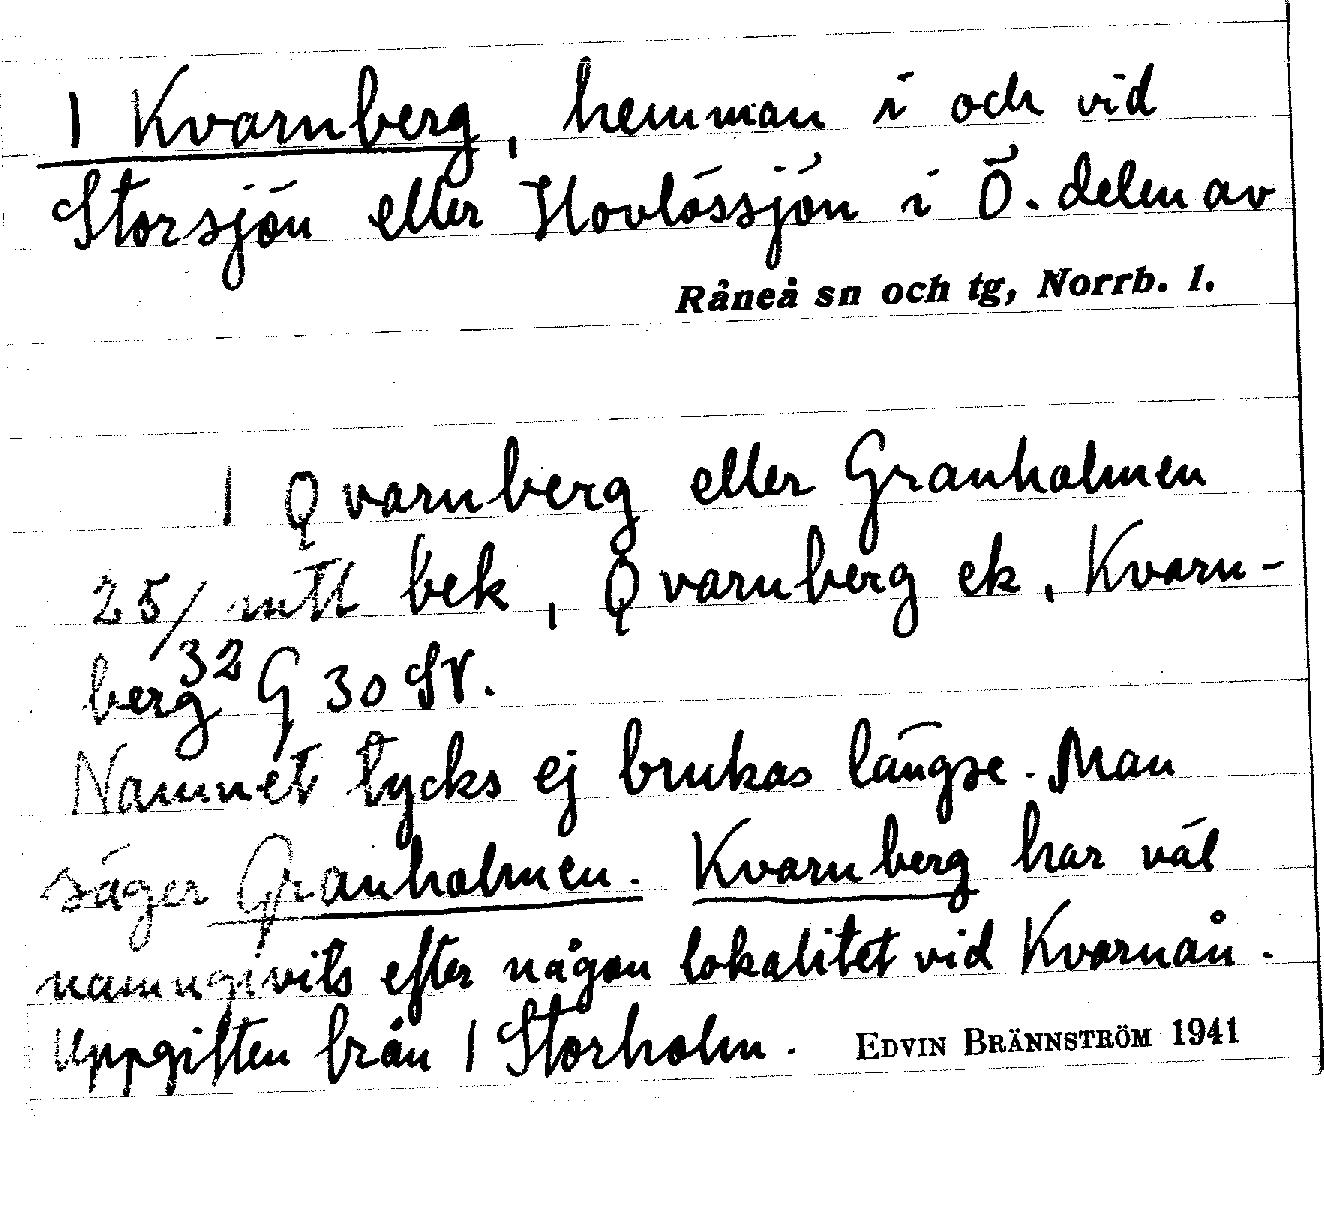 1 Kvarnberg, hemman i och vid
Storsjön eller Hovlössjön i Ö. delen av
Råneå sn och tg, Norrb. l.
1 Qvarnberg eller Granholmen
25/32 mtl bek, Qvarnberg ek, Kvarn-
berg G 30 SV.
Namnet tycks ej brukas längre. Man
säger Granholmen. Kvarnberg har väl
namngivits efter någon lokalitet vid Kvarnån.
Uppgiften från 1 Storholm. EDVIN BRÄNNSTRÖM 1941